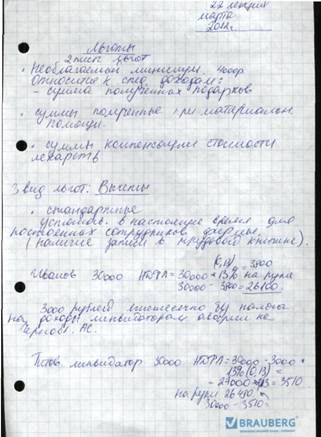 22 лекция
марта
2012г.
Льготы
2 тип льгот
• Необлагаемый минимум. 4000р
Относится к след. доходам:
- сумма полученных подарков
• суммы полученные при материальной
помощи.
• суммы компенсации стоимости
лекарств
3 вид льгот. Вычеты
• стандартные
установ. в настоящее время для
постоянных сотрудников
(наличие записи в трудовой книжке).
Иванов 30000 НДФЛ = 30000 · 13% = 3900
на руки
30000 - 3900 = 26100.
3000 рублей ежемесячно без налога
на доходы ликвидаторам аварии на
Чернобл. АС.
Петов. ликвидатор 30000 НДФЛ = 30000 - 3000 ·
13% (0,13) =
= 27000 · 13 = 3510
на руки 26490 =
30000 - 3510
BRAUBERG